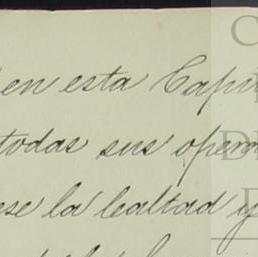 en esta Capi
todas sus opera
ese la lealtad y